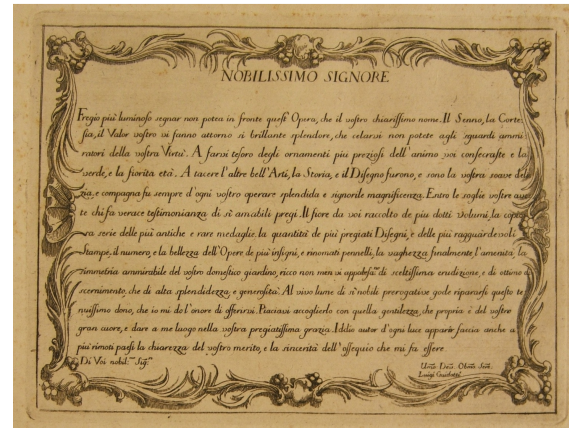 NOBILISSIMO SIGNORE
Fregio più luminoso segnar non potea in fronte quest' Opera, che il vostro chiarissimo nome. Il Senno, la Corte-
sia, il Valor vostro vi fanno attorno sì brillante splendore, che celarvi non potete agli sguardi ammi-
ratori della vostra Virtù. A farvi tesoro degli ornamenti piu preziosi dell' animo voi consecraste e la
verde, e la fiorita età. A tacere l'altre bell' Arti, la Storia, e il Disegno furono, e sono la vostra soave deli-
zia, e compagna fu sempre d'ogni vostro operare splendida e signorile magnificenza. Entro le soglie vostre au-
te chi fa verace testimonianza di sì amabili pregi. Il fiore da voi raccolto de piu dotti volumi, la copio-
sa serie delle più antiche e rare medaglie, la quantità de più pregiati Disegni, e delle più ragguardevoli
Stampe, il numero, e la bellezza dell' Opere de più insigni, e rinomati pennelli, la vaghezza finalmente, l'amenità, la
simmetria ammirabile del vostro domestico giardino, ricco non men vi di sceltissima erudizione, e di ottimo di-
scernimento, che di alta splendidezza, e generosità. Al vivo lume di sì nobili prerogative gode ripararsi questo te-
nuissimo dono, che io mi do l'onore di offerirvi. Piacciavi accoglierlo con quella gentilezza, che propria è del vostro
gran cuore, e dare a me luogo nella vostra pregiatissima grazia. Iddio autor d'ogni luce apparir faccia anche a
più rimoti paesi la chiarezza del vostro merito, e la sincerità dell' ossequio che mi fa essere
Di Voi nobil.mo Sig.re
Umo. Devo. Obmo. Serv.
Luigi